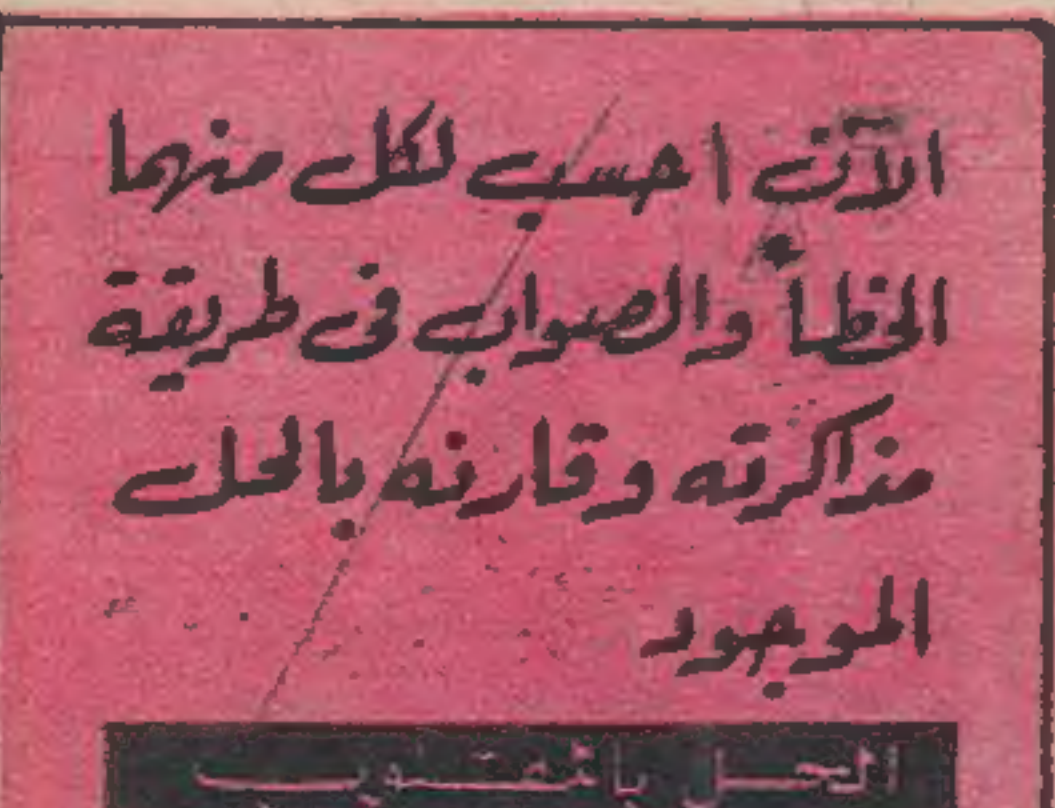 الآن احسب لكل منهما
الخطأ والصواب فى طريقة
مذاكرته وقارنه بالحل
الموجود
الحل بالمقلوب